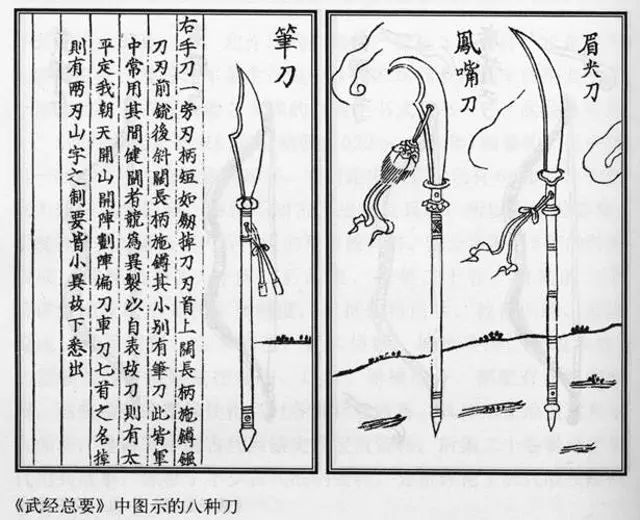 眉尖刀
鳳嘴刀
筆刀
右手刀一旁刃柄短如劒掉刀刃首上闊長柄施鐏
刀刃前銳後斜闊長柄施鐏其小別有筆刀此皆軍
中常用其間健鬭者競為異製以自表故刀則有太
平定我朝天開山開陣劃陣偏刀車刀七首之名掉
則有兩刃山字之制要皆小異故下悉出
《武经总要》中图示的八种刀